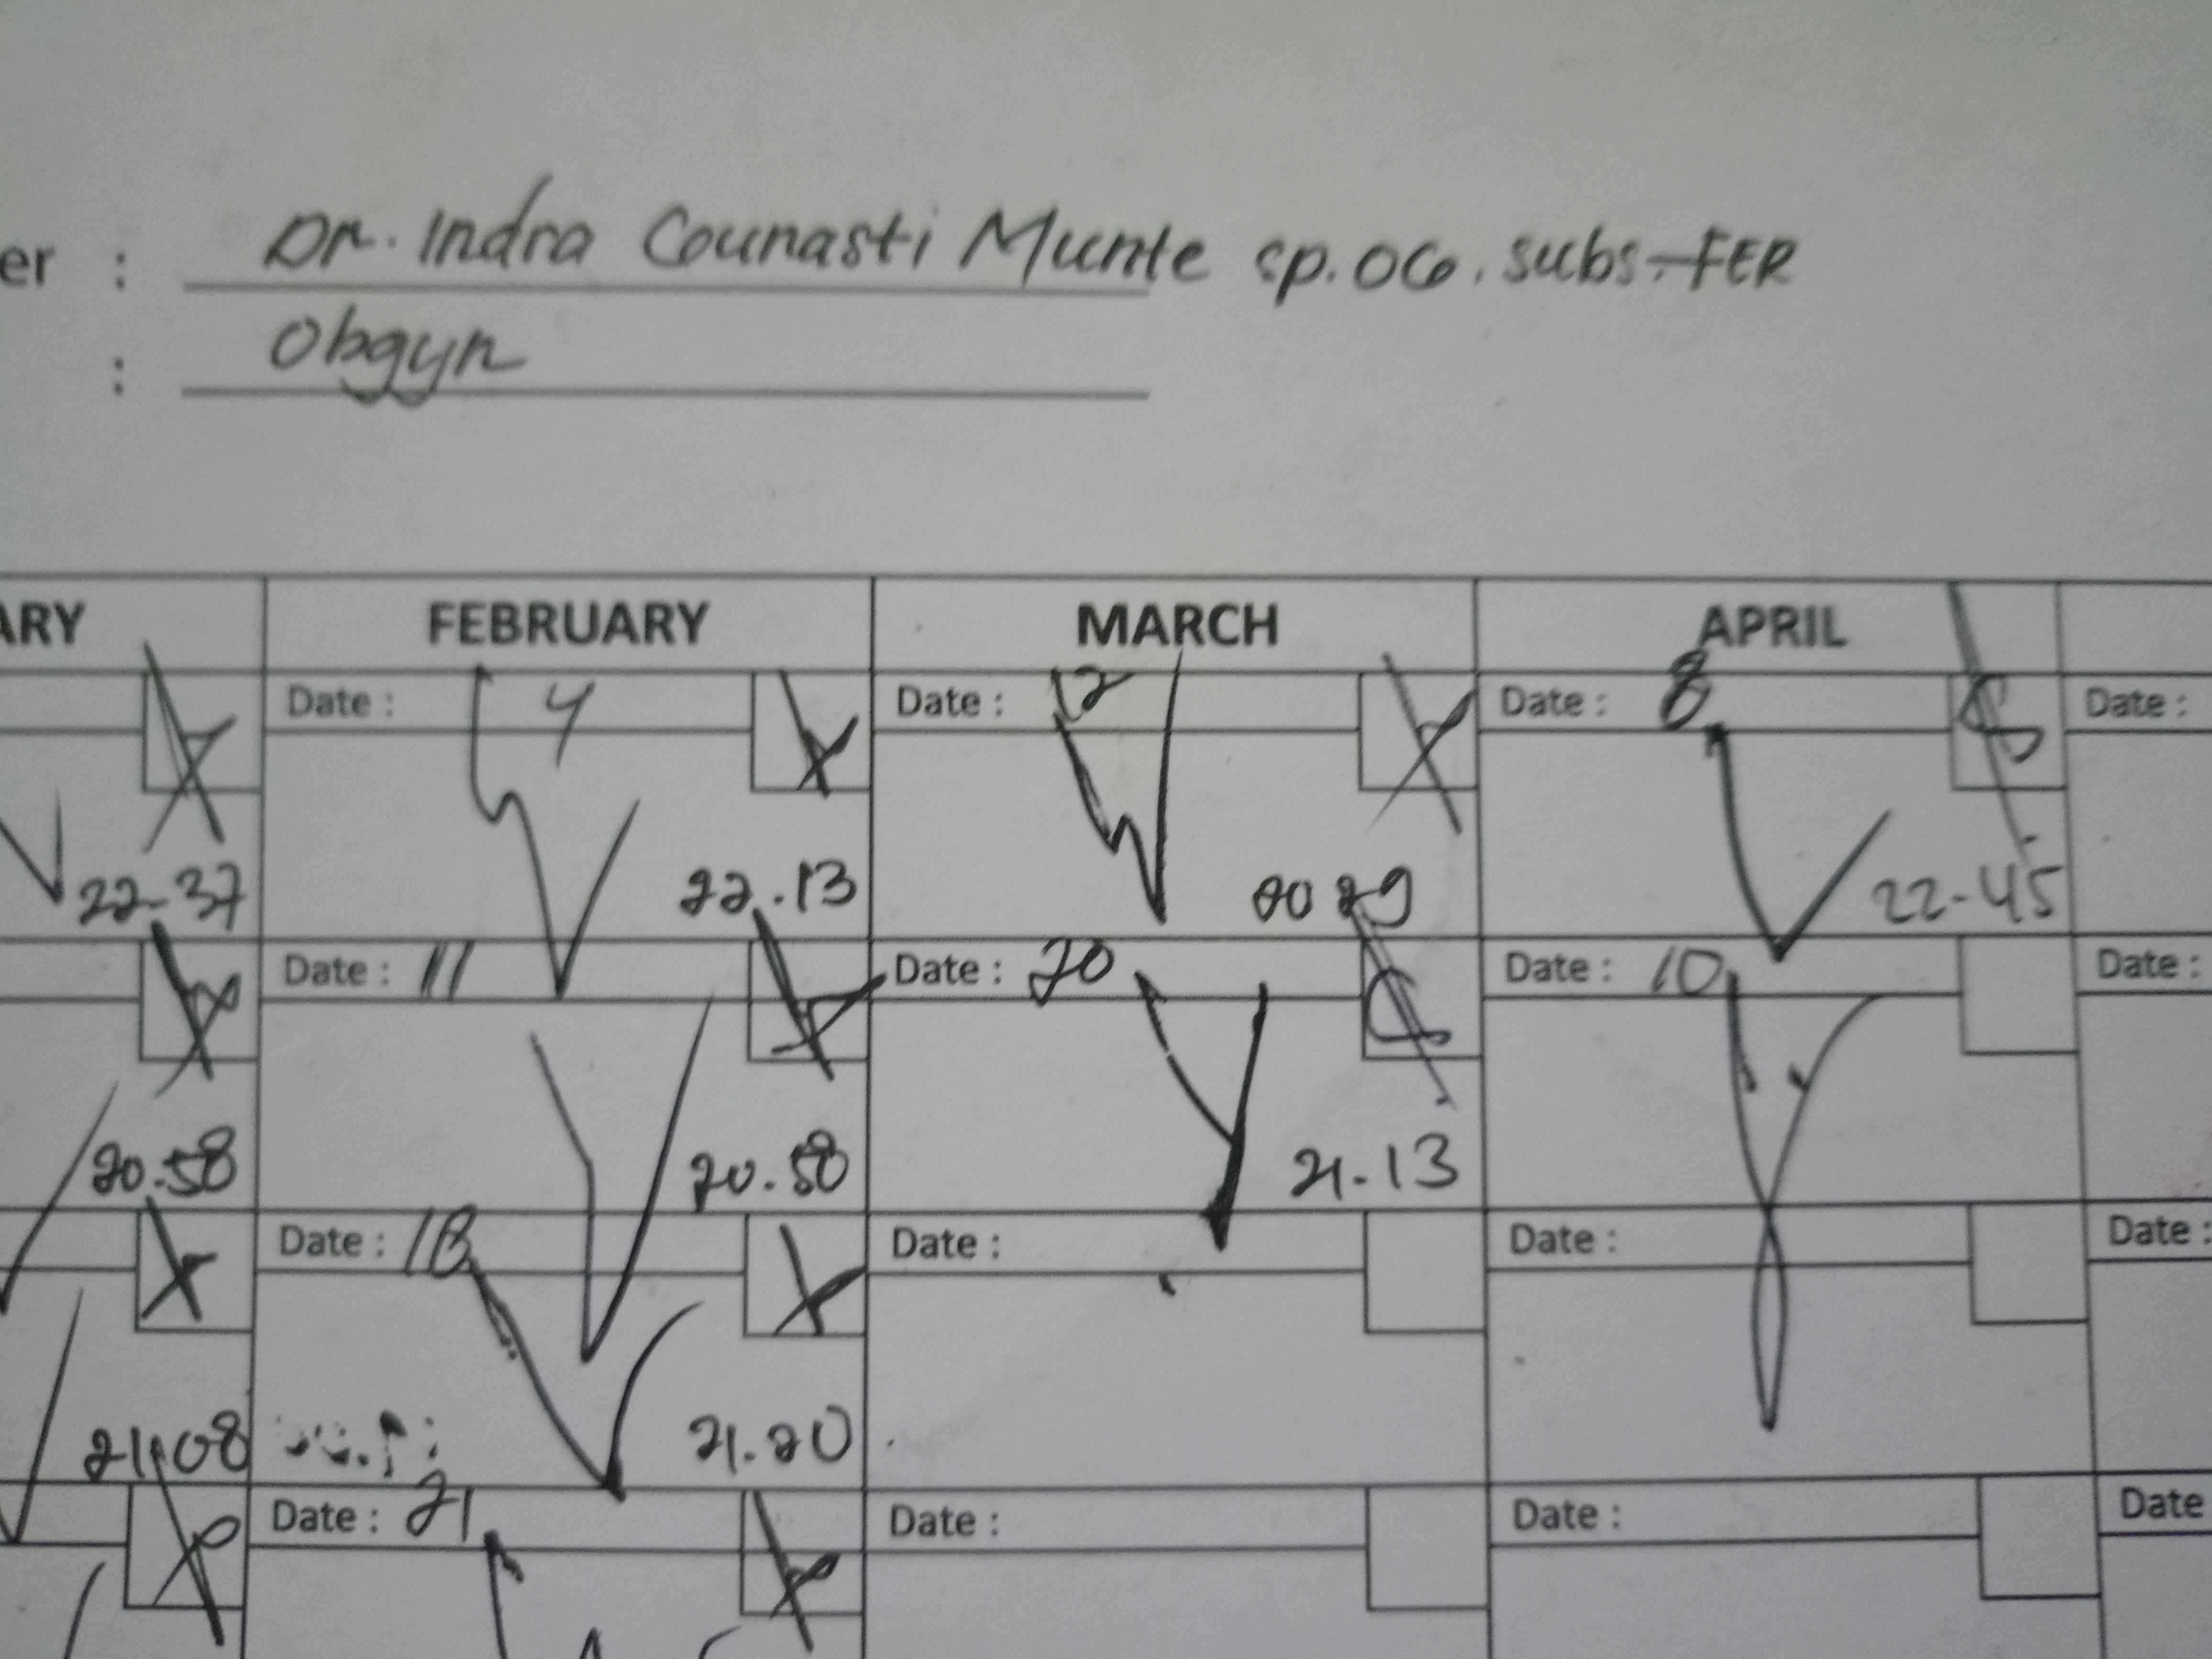 er : Dr. Indra Counasti Munte sp.OG. subs-FER
: Obgyn
ARY FEBRUARY MARCH APRIL
Date : 4 Date : 12 Date : 8 Date :
22-37 22.13 20 29 22-45
Date : 11 Date : 20 Date : 10 Date :
20.58 20.58 21-13
Date : 18 Date : Date : Date :
21.08 21.20
Date : 21 Date : Date : Date